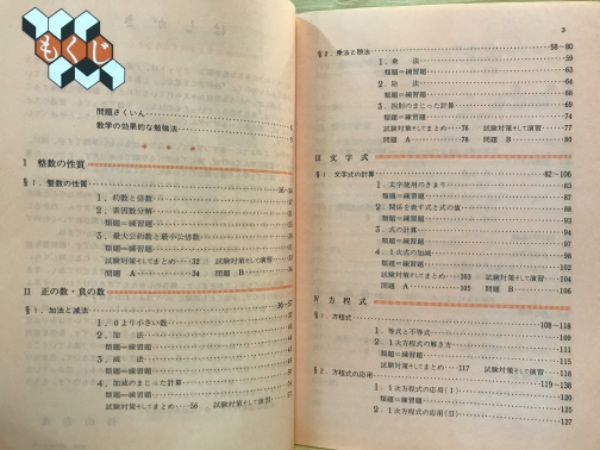 もくじ
問題さくいん
数学の効果的な勉強法
I 整数の性質
§1. 整数の性質
1. 約数と倍数
2. 素因数分解
類題=練習題
3. 最大公約数と最小公倍数
類題=練習題
試験対策そしてまとめ 32 試験対策そして演習
問題 A 34 問題 B
II 正の数・負の数
§1. 加法と減法
1. 0より小さい数
2. 加法
類題=練習題
3. 減法
類題=練習題
4. 加減のまじった計算
類題=練習題
試験対策そしてまとめ 56 試験対策そして演習
3
§2. 乗法と除法 58~80
1. 乗法 59
類題=練習題 63
2. 除法 64
類題=練習題 68
3. 四則のまじった計算 69
類題=練習題 74
試験対策そしてまとめ 76 試験対策そして演習 77
問題 A 78 問題 B 80
III 文字式
§1. 文字式の計算 82~106
1. 文字使用のきまり 83
2. 関係を表す式と式の値 88
類題=練習題
3. 式の計算
類題=練習題
4. 1次式の加減
類題=練習題
試験対策そしてまとめ 103 試験対策そして演習 104
問題 A 105 問題 B 106
IV 方程式
§1. 方程式 108~118
1. 等式と不等式 109
2. 1次方程式の解き方 111
類題=練習題 115
試験対策そしてまとめ 117 試験対策そして演習
§2. 方程式の応用 119~138
1. 1次方程式の応用(I) 120
類題=練習題 125
2. 1次方程式の応用(II) 127